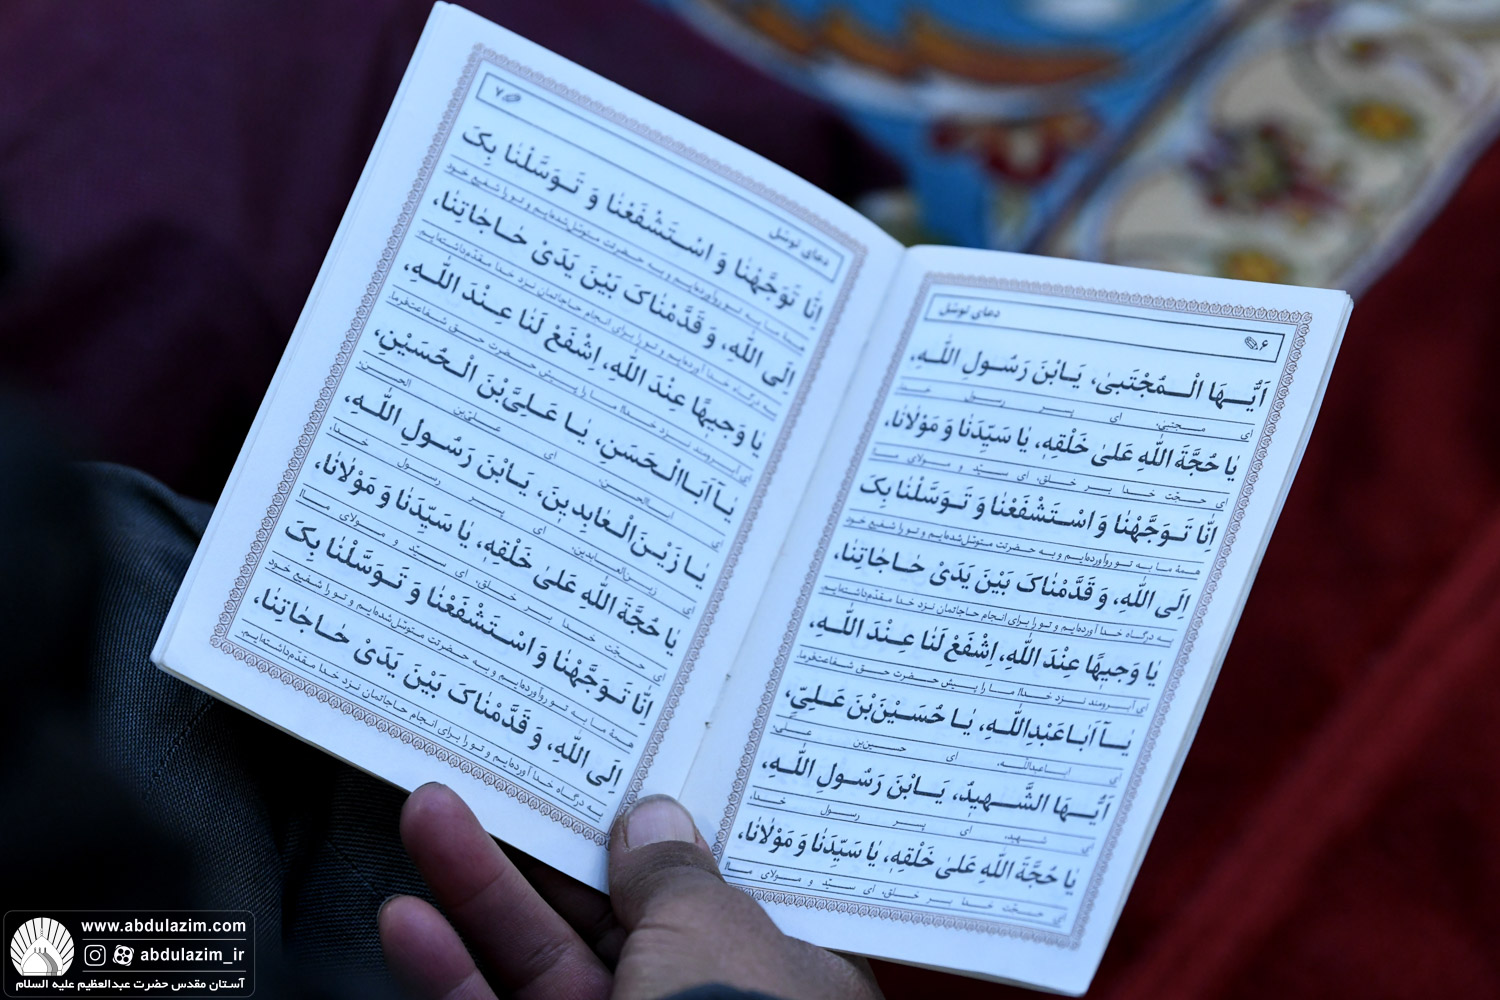 دعای توسّل
۶
اَیُّهَا الْمُجْتَبىٰ، یَابْنَ رَسُولِ اللّٰهِ،
ای مجتبی، ای پسر رسول خدا،
یٰا حُجَّةَ اللّٰهِ عَلىٰ خَلْقِهِ، یٰا سَیِّدَنٰا وَ مَوْلٰانٰا،
ای حجّت خدا بر خلق، ای سیّد و مولای ما
اِنّٰا تَوَجَّهْنٰا وَ اسْتَشْفَعْنٰا وَ تَوَسَّلْنٰا بِکَ
همهٔ ما به تو روآورده‌ایم و به حضرتت متوسّل‌شده‌ایم و تو را شفیع خود
اِلَى اللّٰهِ، وَ قَدَّمْنٰاکَ بَیْنَ یَدَیْ حٰاجٰاتِنٰا،
به درگاه خدا آورده‌ایم و تو را برای انجام حاجاتمان نزد خدا مقدّم‌داشته‌ایم.
یٰا وَجِیهًا عِنْدَ اللّٰهِ، اِشْفَعْ لَنٰا عِنْدَ اللّٰهِ،
ای آبرومند نزد خدا! ما را پیش حضرت حق شفاعت‌فرما.
یٰآ اَبٰاعَبْدِاللّٰهِ، یٰا حُسَیْنَ‌بْنَ عَلِیٍّ،
ای اباعبدالله، ای حسین‌بن علی،
اَیُّهَا الشَّهِیدُ، یَابْنَ رَسُولِ اللّٰهِ،
ای شهید، ای پسر رسول خدا،
یٰا حُجَّةَ اللّٰهِ عَلىٰ خَلْقِهِ، یٰا سَیِّدَنٰا وَ مَوْلٰانٰا،
ای حجّت خدا بر خلق، ای سیّد و مولای ما!
دعای توسّل
۷
اِنّٰا تَوَجَّهْنٰا وَ اسْتَشْفَعْنٰا وَ تَوَسَّلْنٰا بِکَ
همهٔ ما به تو روآورده‌ایم و به حضرتت متوسّل‌شده‌ایم و تو را شفیع خود
اِلَى اللّٰهِ، وَ قَدَّمْنٰاکَ بَیْنَ یَدَیْ حٰاجٰاتِنٰا،
به درگاه خدا آورده‌ایم و تو را برای انجام حاجاتمان نزد خدا مقدّم‌داشته‌ایم.
یٰا وَجِیهًا عِنْدَ اللّٰهِ، اِشْفَعْ لَنٰا عِنْدَ اللّٰهِ،
ای آبرومند نزد خدا! ما را پیش حضرت حق شفاعت‌فرما.
یٰآ اَبَاالْحَسَنِ، یٰا عَلِیَّ‌بْنَ الْحُسَیْنِ،
ای ابالحسن، ای علی‌بن الحسین،
یٰا زَیْنَ‌الْعٰابِدِینَ، یَابْنَ رَسُولِ اللّٰهِ،
ای زین‌العابدین، ای پسر رسول خدا،
یٰا حُجَّةَ اللّٰهِ عَلىٰ خَلْقِهِ، یٰا سَیِّدَنٰا وَ مَوْلٰانٰا،
ای حجّت خدا بر خلق، ای سیّد و مولای ما!
اِنّٰا تَوَجَّهْنٰا وَ اسْتَشْفَعْنٰا وَ تَوَسَّلْنٰا بِکَ
همهٔ ما به تو روآورده‌ایم و به حضرتت متوسّل‌شده‌ایم و تو را شفیع خود
اِلَى اللّٰهِ، وَ قَدَّمْنٰاکَ بَیْنَ یَدَیْ حٰاجٰاتِنٰا،
به درگاه خدا آورده‌ایم و تو را برای انجام حاجاتمان نزد خدا مقدّم‌داشته‌ایم.
www.abdulazim.com
abdulazim_ir
آستان مقدس حضرت عبدالعظیم علیه السلام